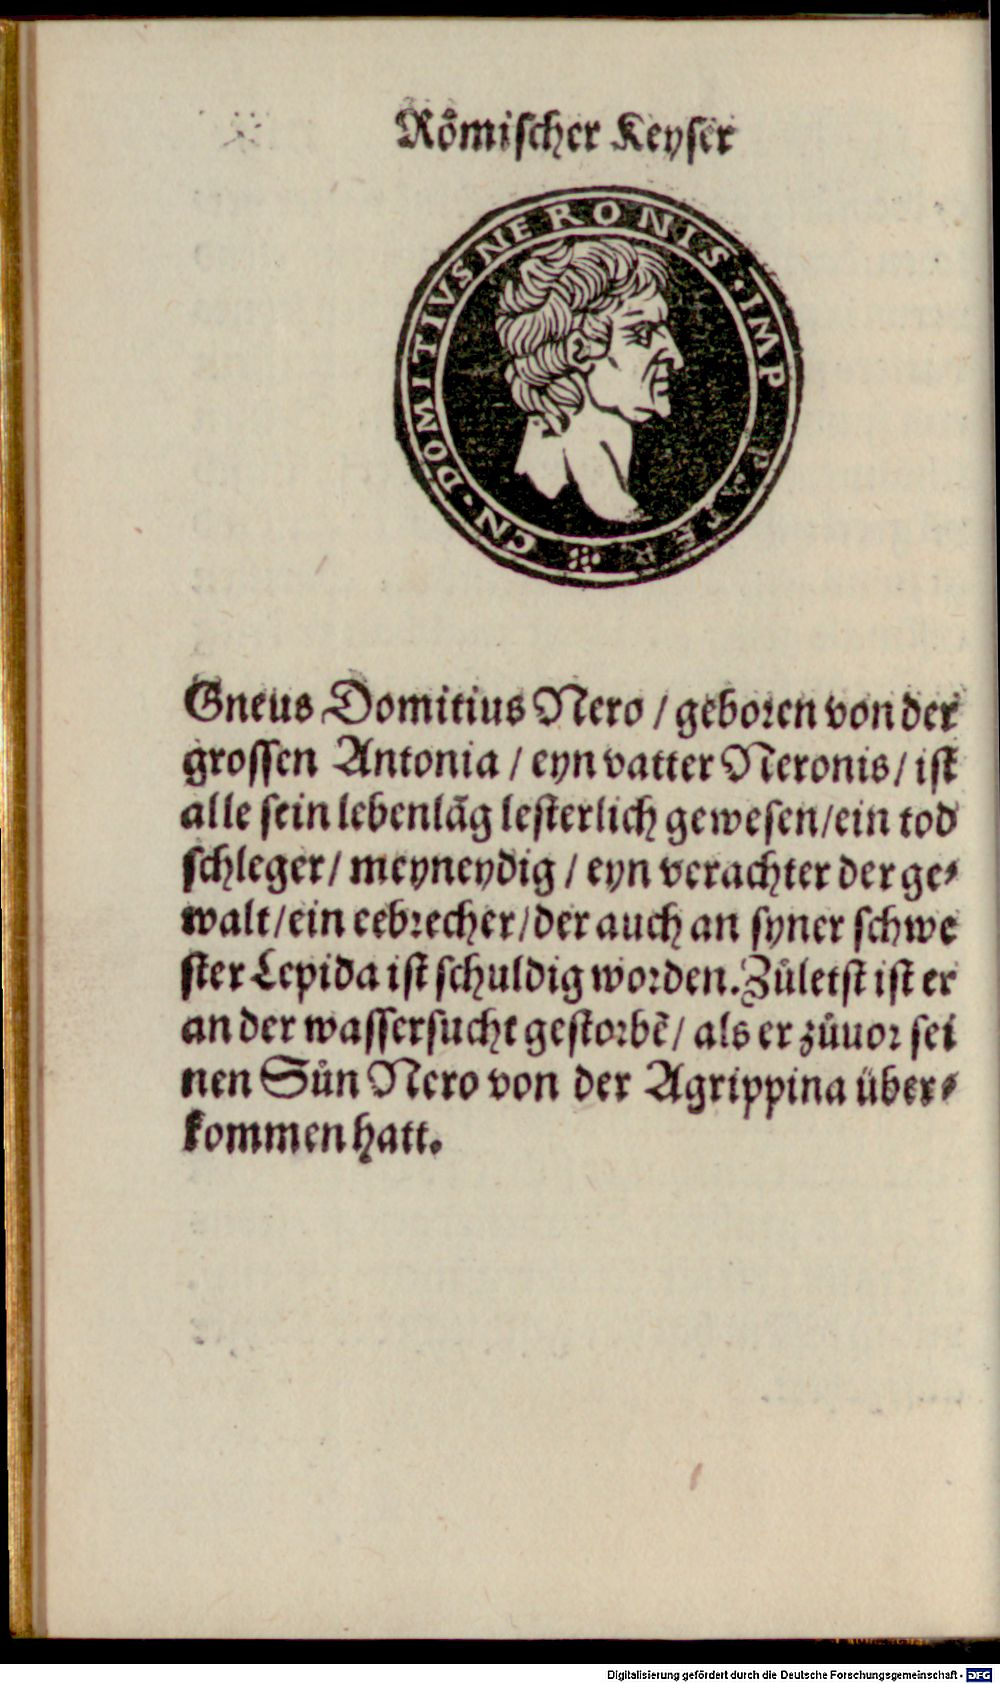 Roͤmischer Keyser
CN · DOMITIVS NERONIS · IMP PATER
Gneus Domitius Nero / geboren von der
grossen Antonia / eyn vatter Neronis / ist
alle sein lebenlãg lesterlich gewesen / ein tod
schleger / meyneydig / eyn verachter der ge⸗
walt / ein eebrecher / der auch an syner schwe
ster Lepida ist schuldig worden. Zůletst ist er
an der wassersucht gestorbẽ / als er zůuor sei
nen Sůn Nero von der Agrippina über⸗
kommen hatt.
Digitalisierung gefördert durch die Deutsche Forschungsgemeinschaft - DFG